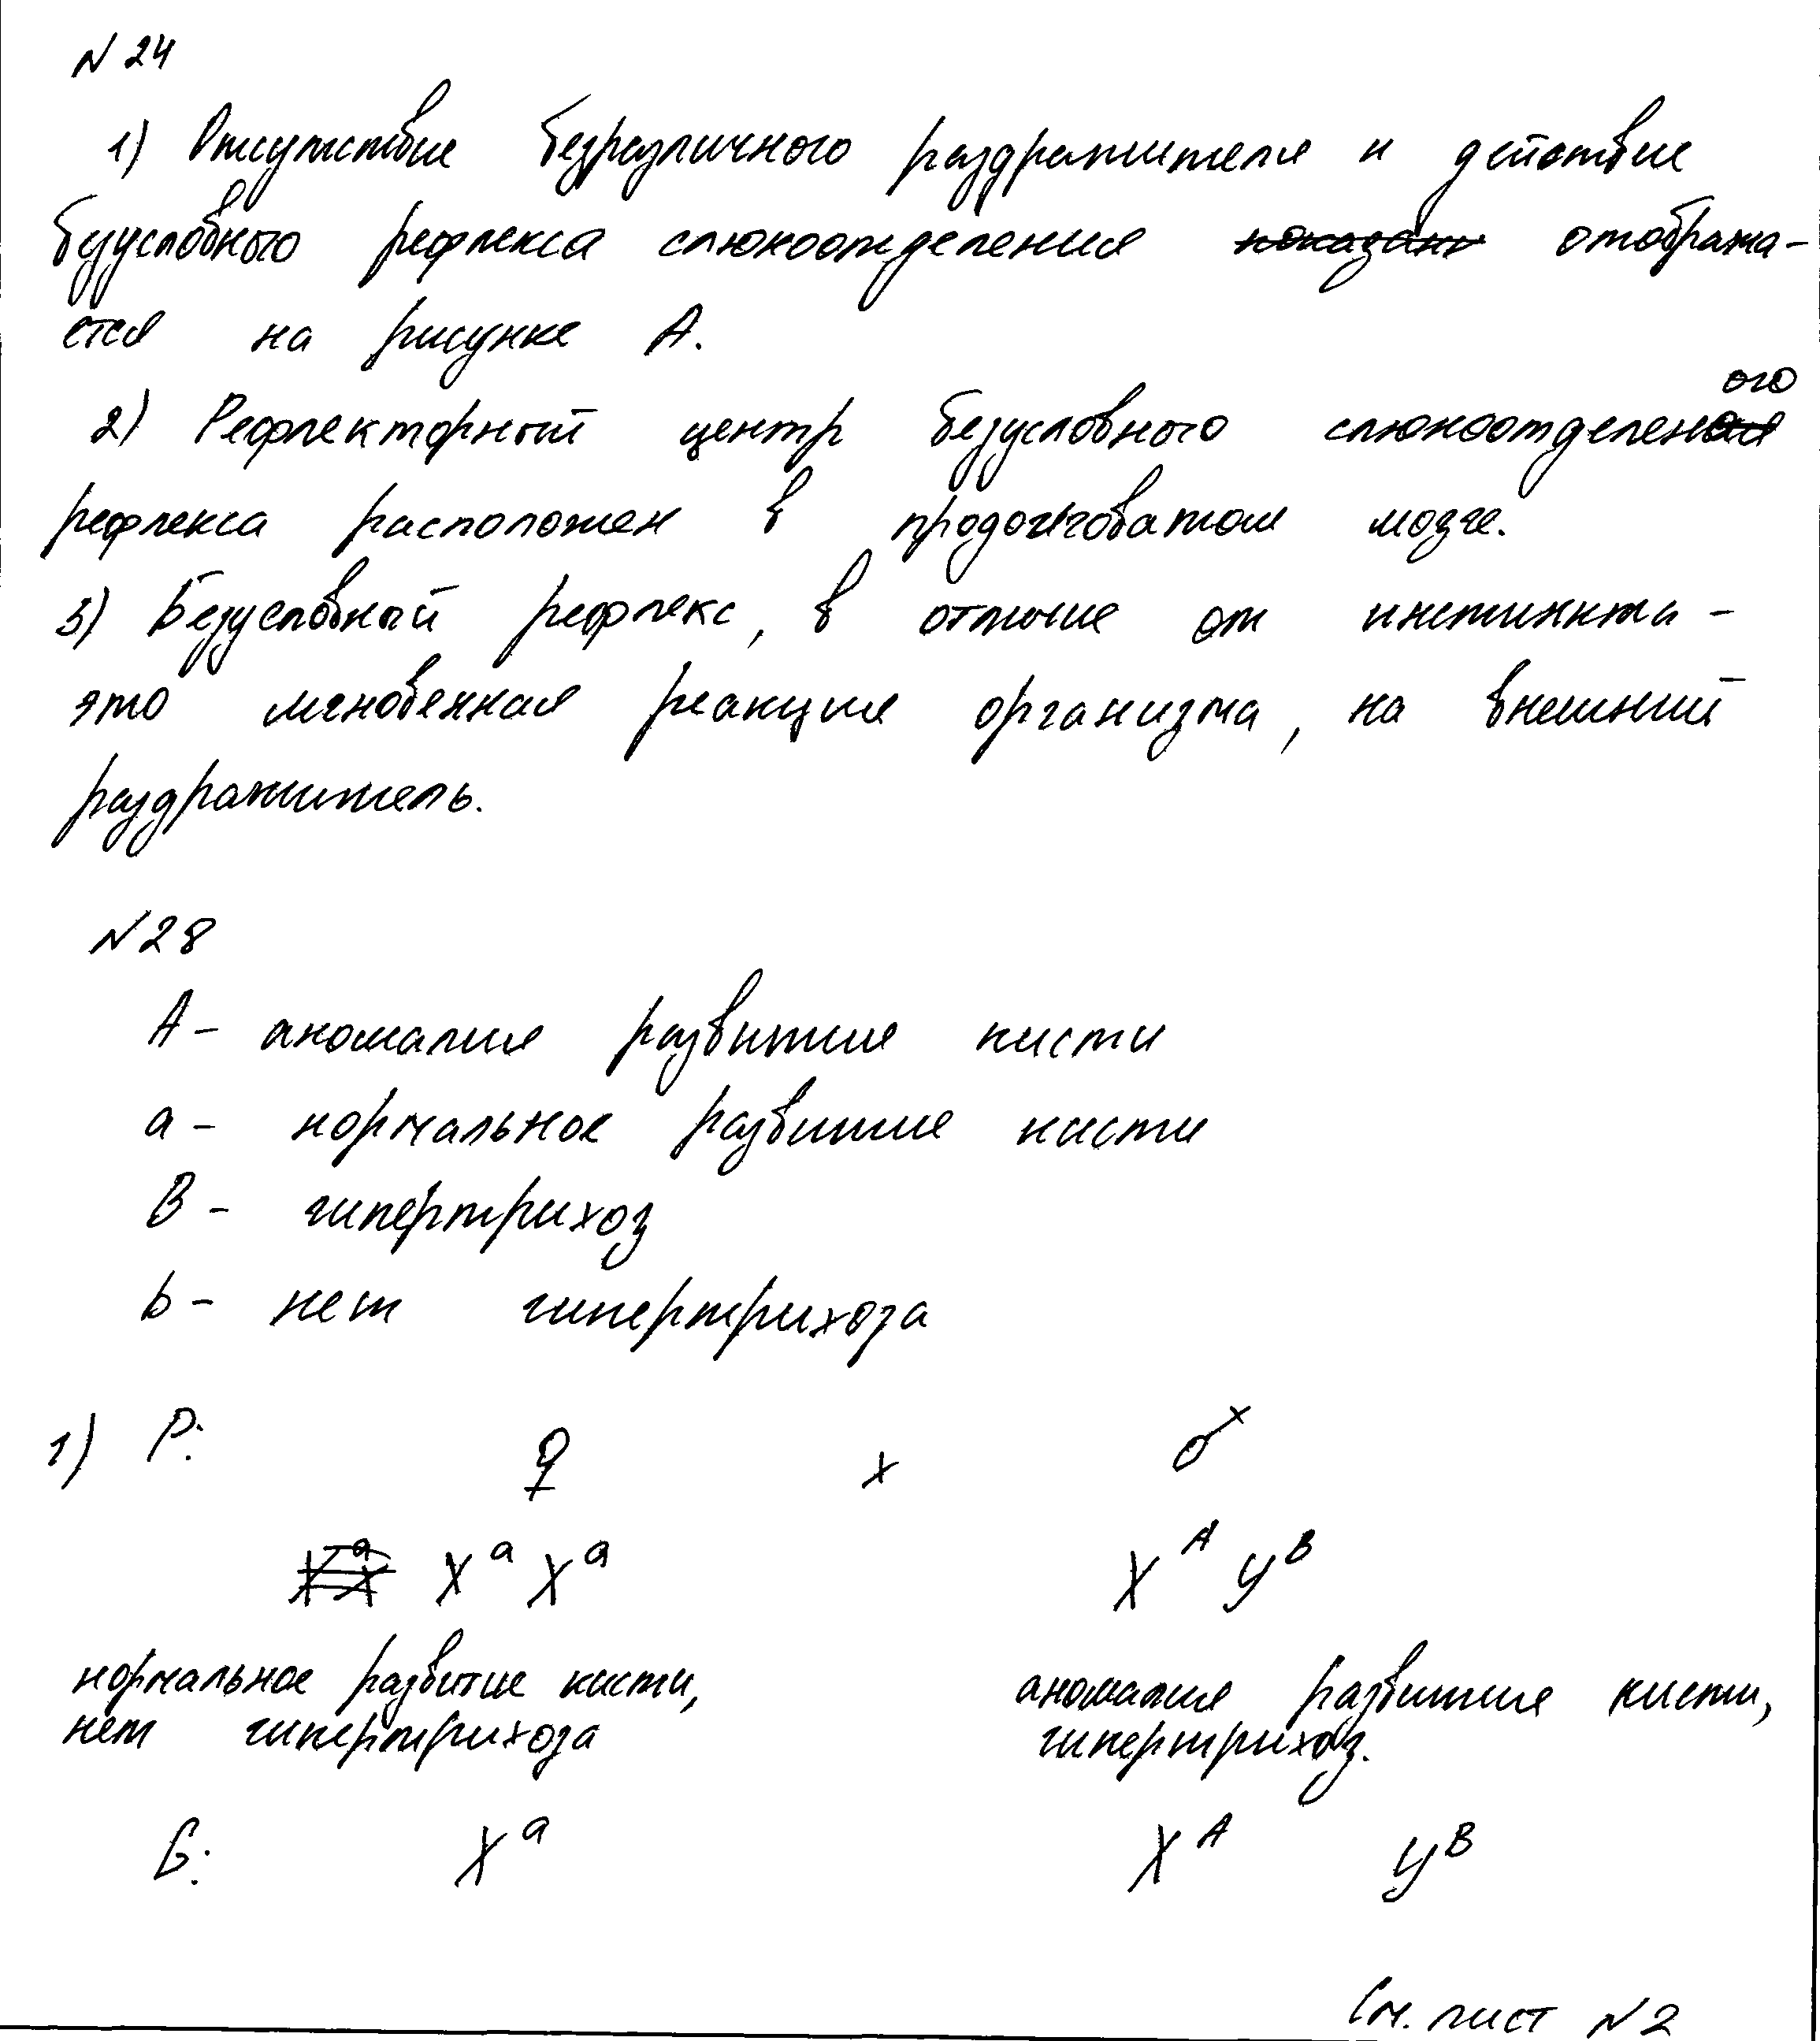 N 24
1) Отсутствие безразличного раздражителя и действие
безусловного рефлекса слюноотделения показано отобража-
ется на рисунке А.
2) Рефлекторный центр безусловного слюноотделеного
рефлекса расположен в продолговатом мозге.
3) Безусловный рефлекс, в отличие от инстинкта -
это мгновенная реакция организма, на внешний
раздражитель.
N 28
A - аномалия развития кисти
a - нормальное развитие кисти
B - гипертрихоз
b - нет гипертрихоза
1) P: ♀ x ♂
Xᵃ Xᵃ Xᴬ Yᴮ
нормальное развитие кисти, аномалия развития кисти,
нет гипертрихоза гипертрихоз.
G: Xᵃ Xᴬ Yᴮ
См. лист N 2